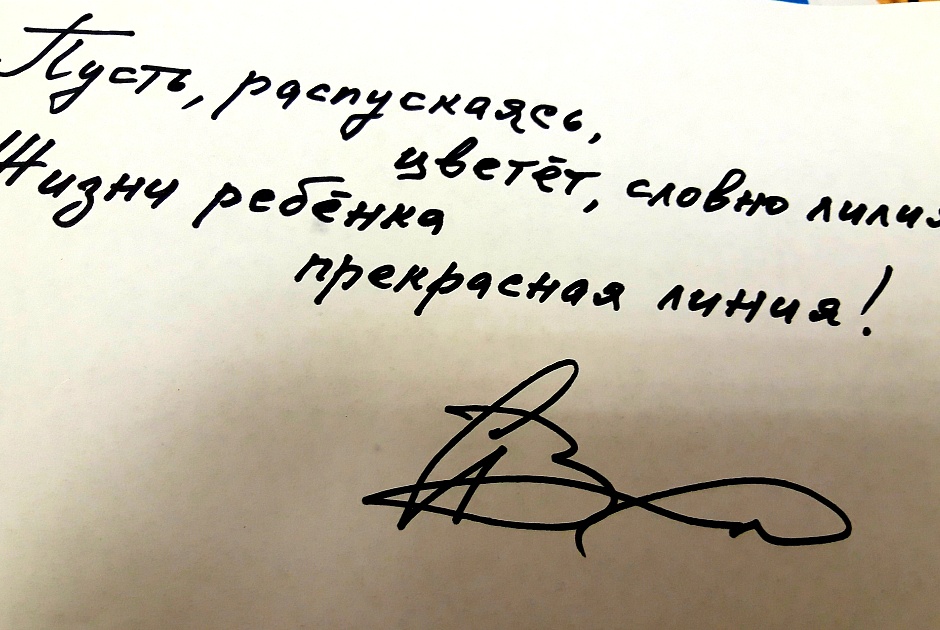 Пусть, распускаясь,
цветёт, словно лилия
Жизни ребёнка
прекрасная линия!